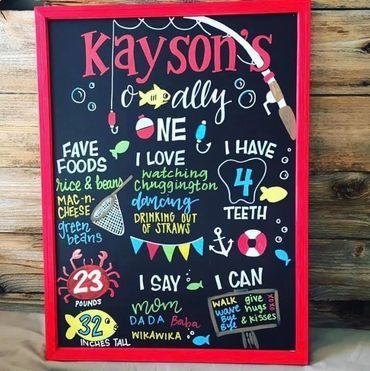 Kayson's
o ally
ONE
FAVE
FOODS
rice & beans
MAC-N-
CHEESE
green
beans
I LOVE
watching
chuggington
dancing
DRINKING OUT
OF STRAWS
I HAVE
4
TEETH
23
POUNDS
32
INCHES TALL
I SAY
mom
DADA Baba
WIKAWIKA
I CAN
WALK
wave
BYE
BYE
give
hugs
& kisses
XOXO